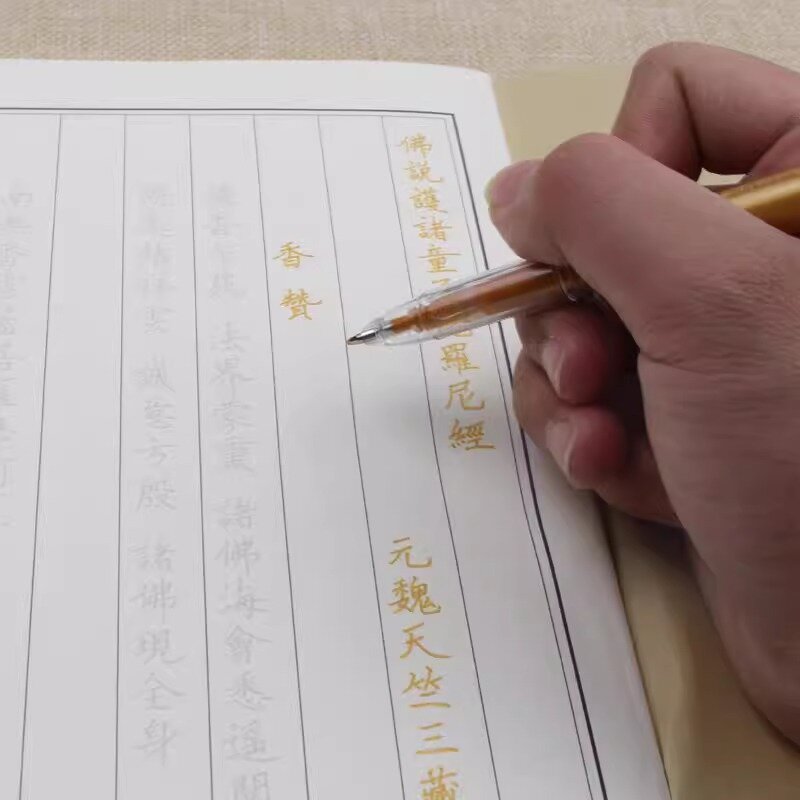 佛説護諸童羅尼經
元魏天竺三藏
香贊
爐香乍爇 法界蒙熏 諸佛海會悉遙聞
隨處結祥雲 誠意方殷 諸佛現全身
南無香雲蓋菩薩摩訶